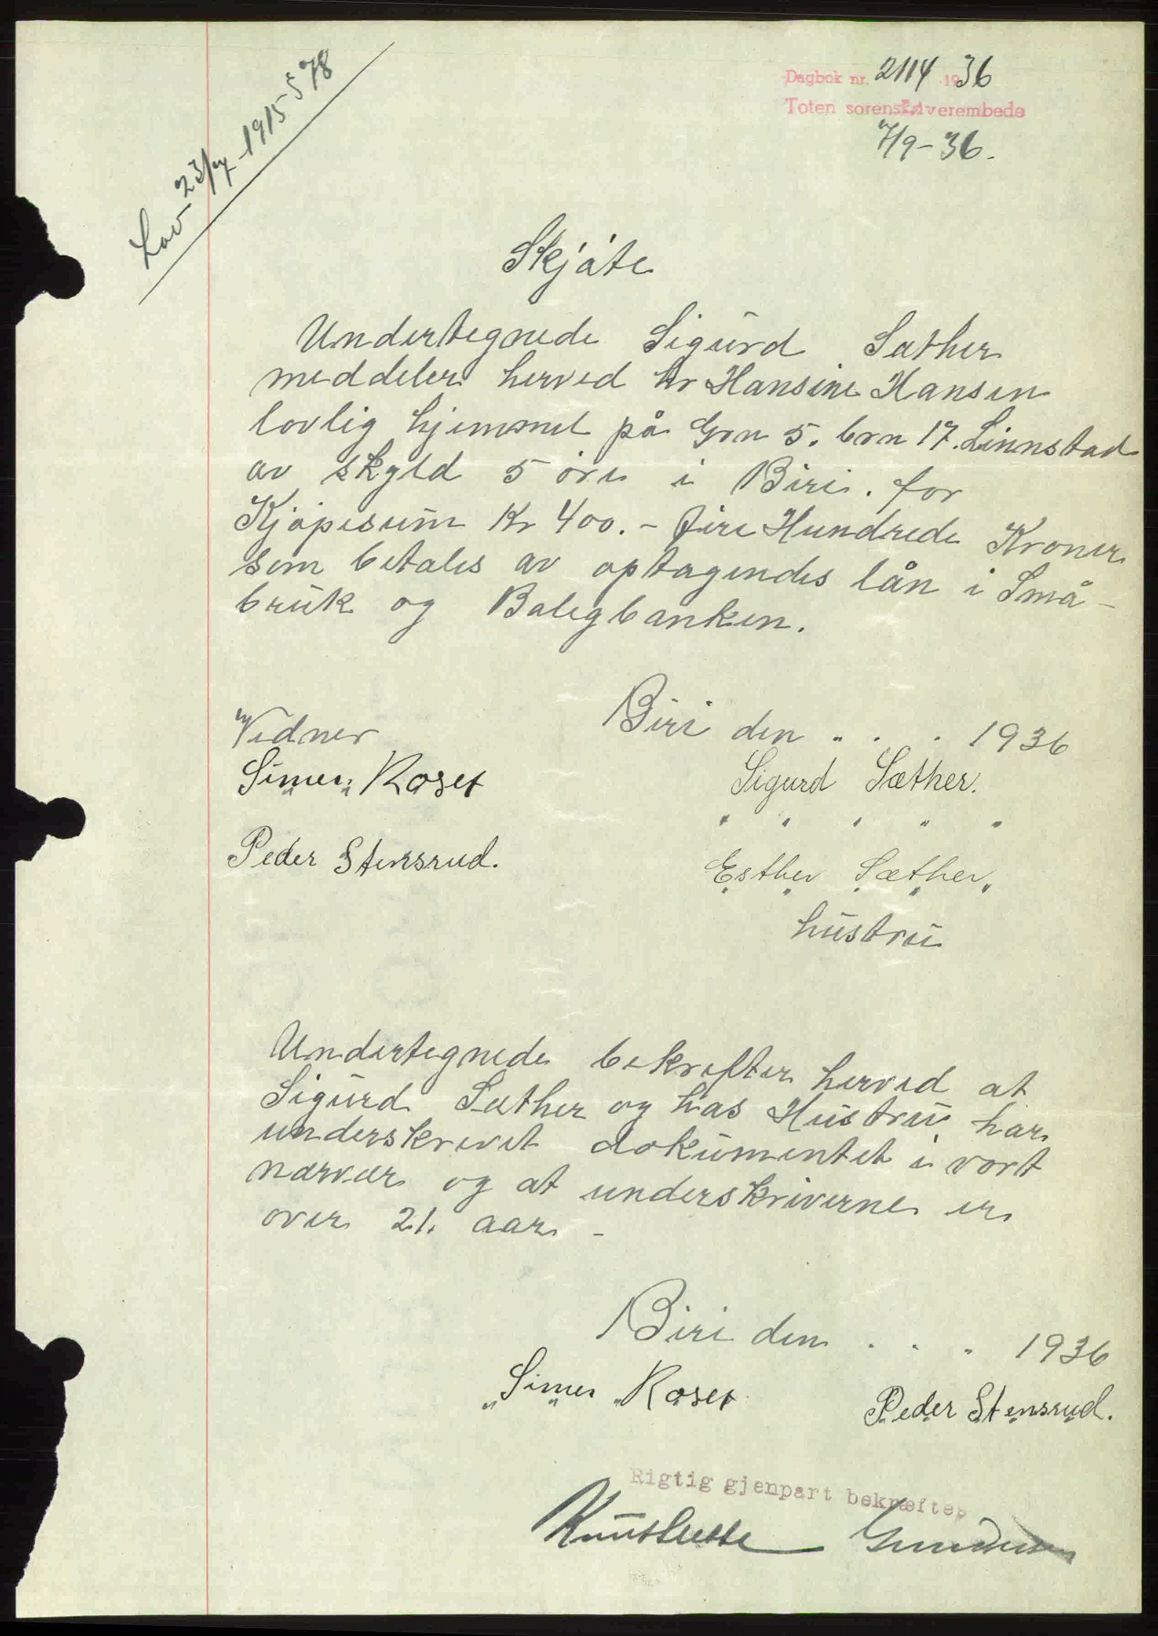 Dagbok nr. 2114 1936
Toten sorenskriverembede
7/9-36.
Lov 23/7-1915 § 78
Skjøte
Undertegnede Sigurd Sæther
meddeler herved hr Hansine Hansen
lovlig hjemmel på Grn 5. brn 17. Linnstad
av skyld 5 øre i Biri. for
Kjøpesum Kr 400.- Fire Hundrede Kroner
som betales av optagendes lån i Små-
bruk og Boligbanken.
Biri den . . . 1936
Vidner
Simen Roset
Sigurd Sæther.
Peder Stensrud.
Esther Sæther
hustru
Undertegnede bekrefter herved at
Sigurd Sæther og has Hustru har
underskrevet dokumentet i vort
nærvær og at underskriverne er
over 21. aar -
Biri den . . . 1936
Simen Roset
Peder Stensrud.
Rigtig gjenpart bekræftes